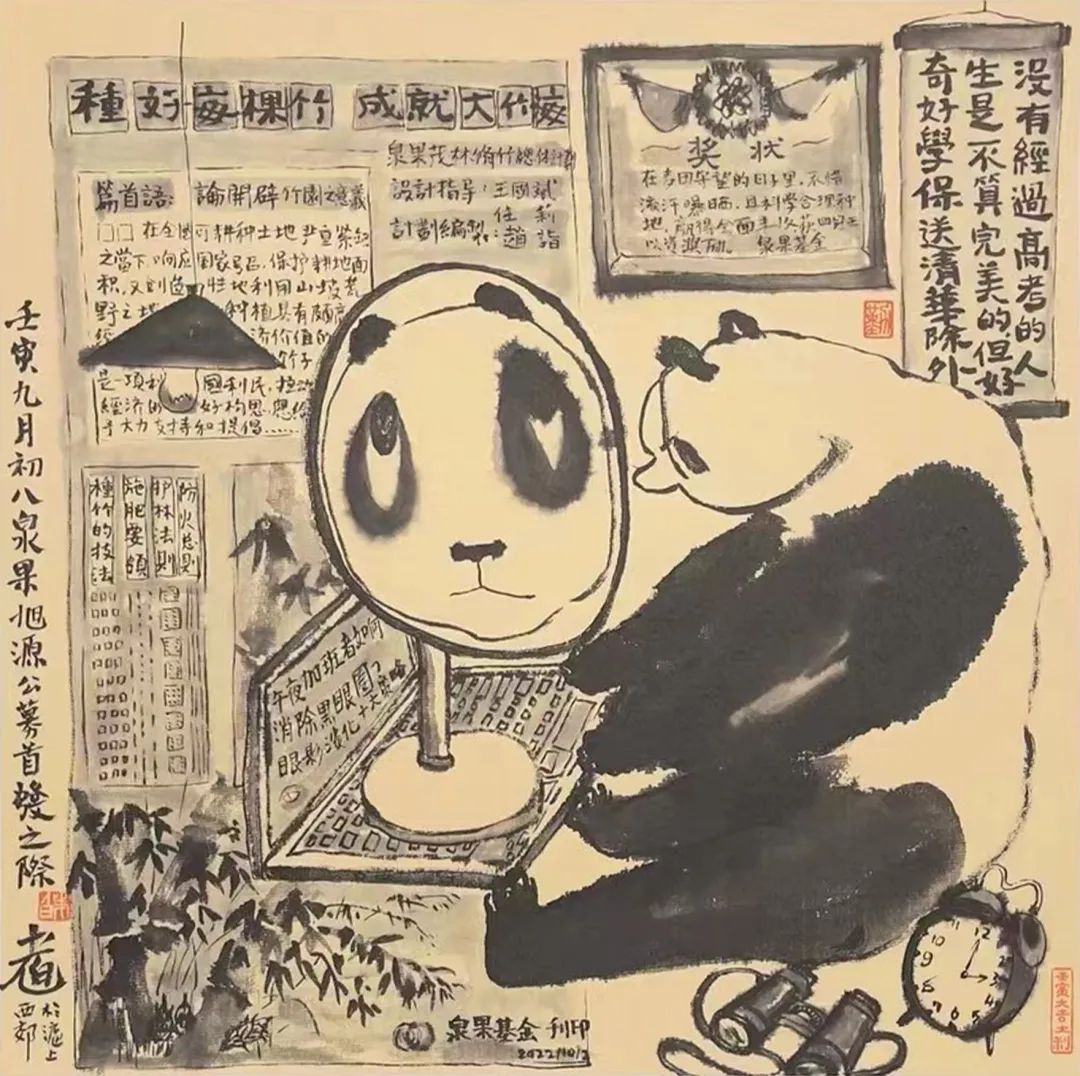 種好每棵竹 成就大竹海
泉果茂林修竹總体計劃
設計指導：王國斌
任莉
計劃編製：趙詣
篇首語：論開辟竹園之意義
□□在全國可耕种土地
之當下，响应國家号召，保护耕地面
积，又創造
地利用山坡荒
野之地
种植具有
济价值的
竹子
是一項利國利民，拉动
經济的好构思，應给
予大力支持和提倡……
防火总則
护林法則
施肥要領
種竹的技法
奖状
在麦田守望的日子里，不惜
流汗曝晒，且科學合理种
地，
以资奖励。 泉果基金
没有經過高考的人
生是不算完美的但好
奇好學保送清華除外
午夜加班者如何
消除黑眼圈？
眼影淡化十天
12
1
2
3
4
5
6
7
8
9
10
泉果基金 刊印
2022/10/2
壬寅九月初八泉果旭源公募首發之際
於滬上
西郊